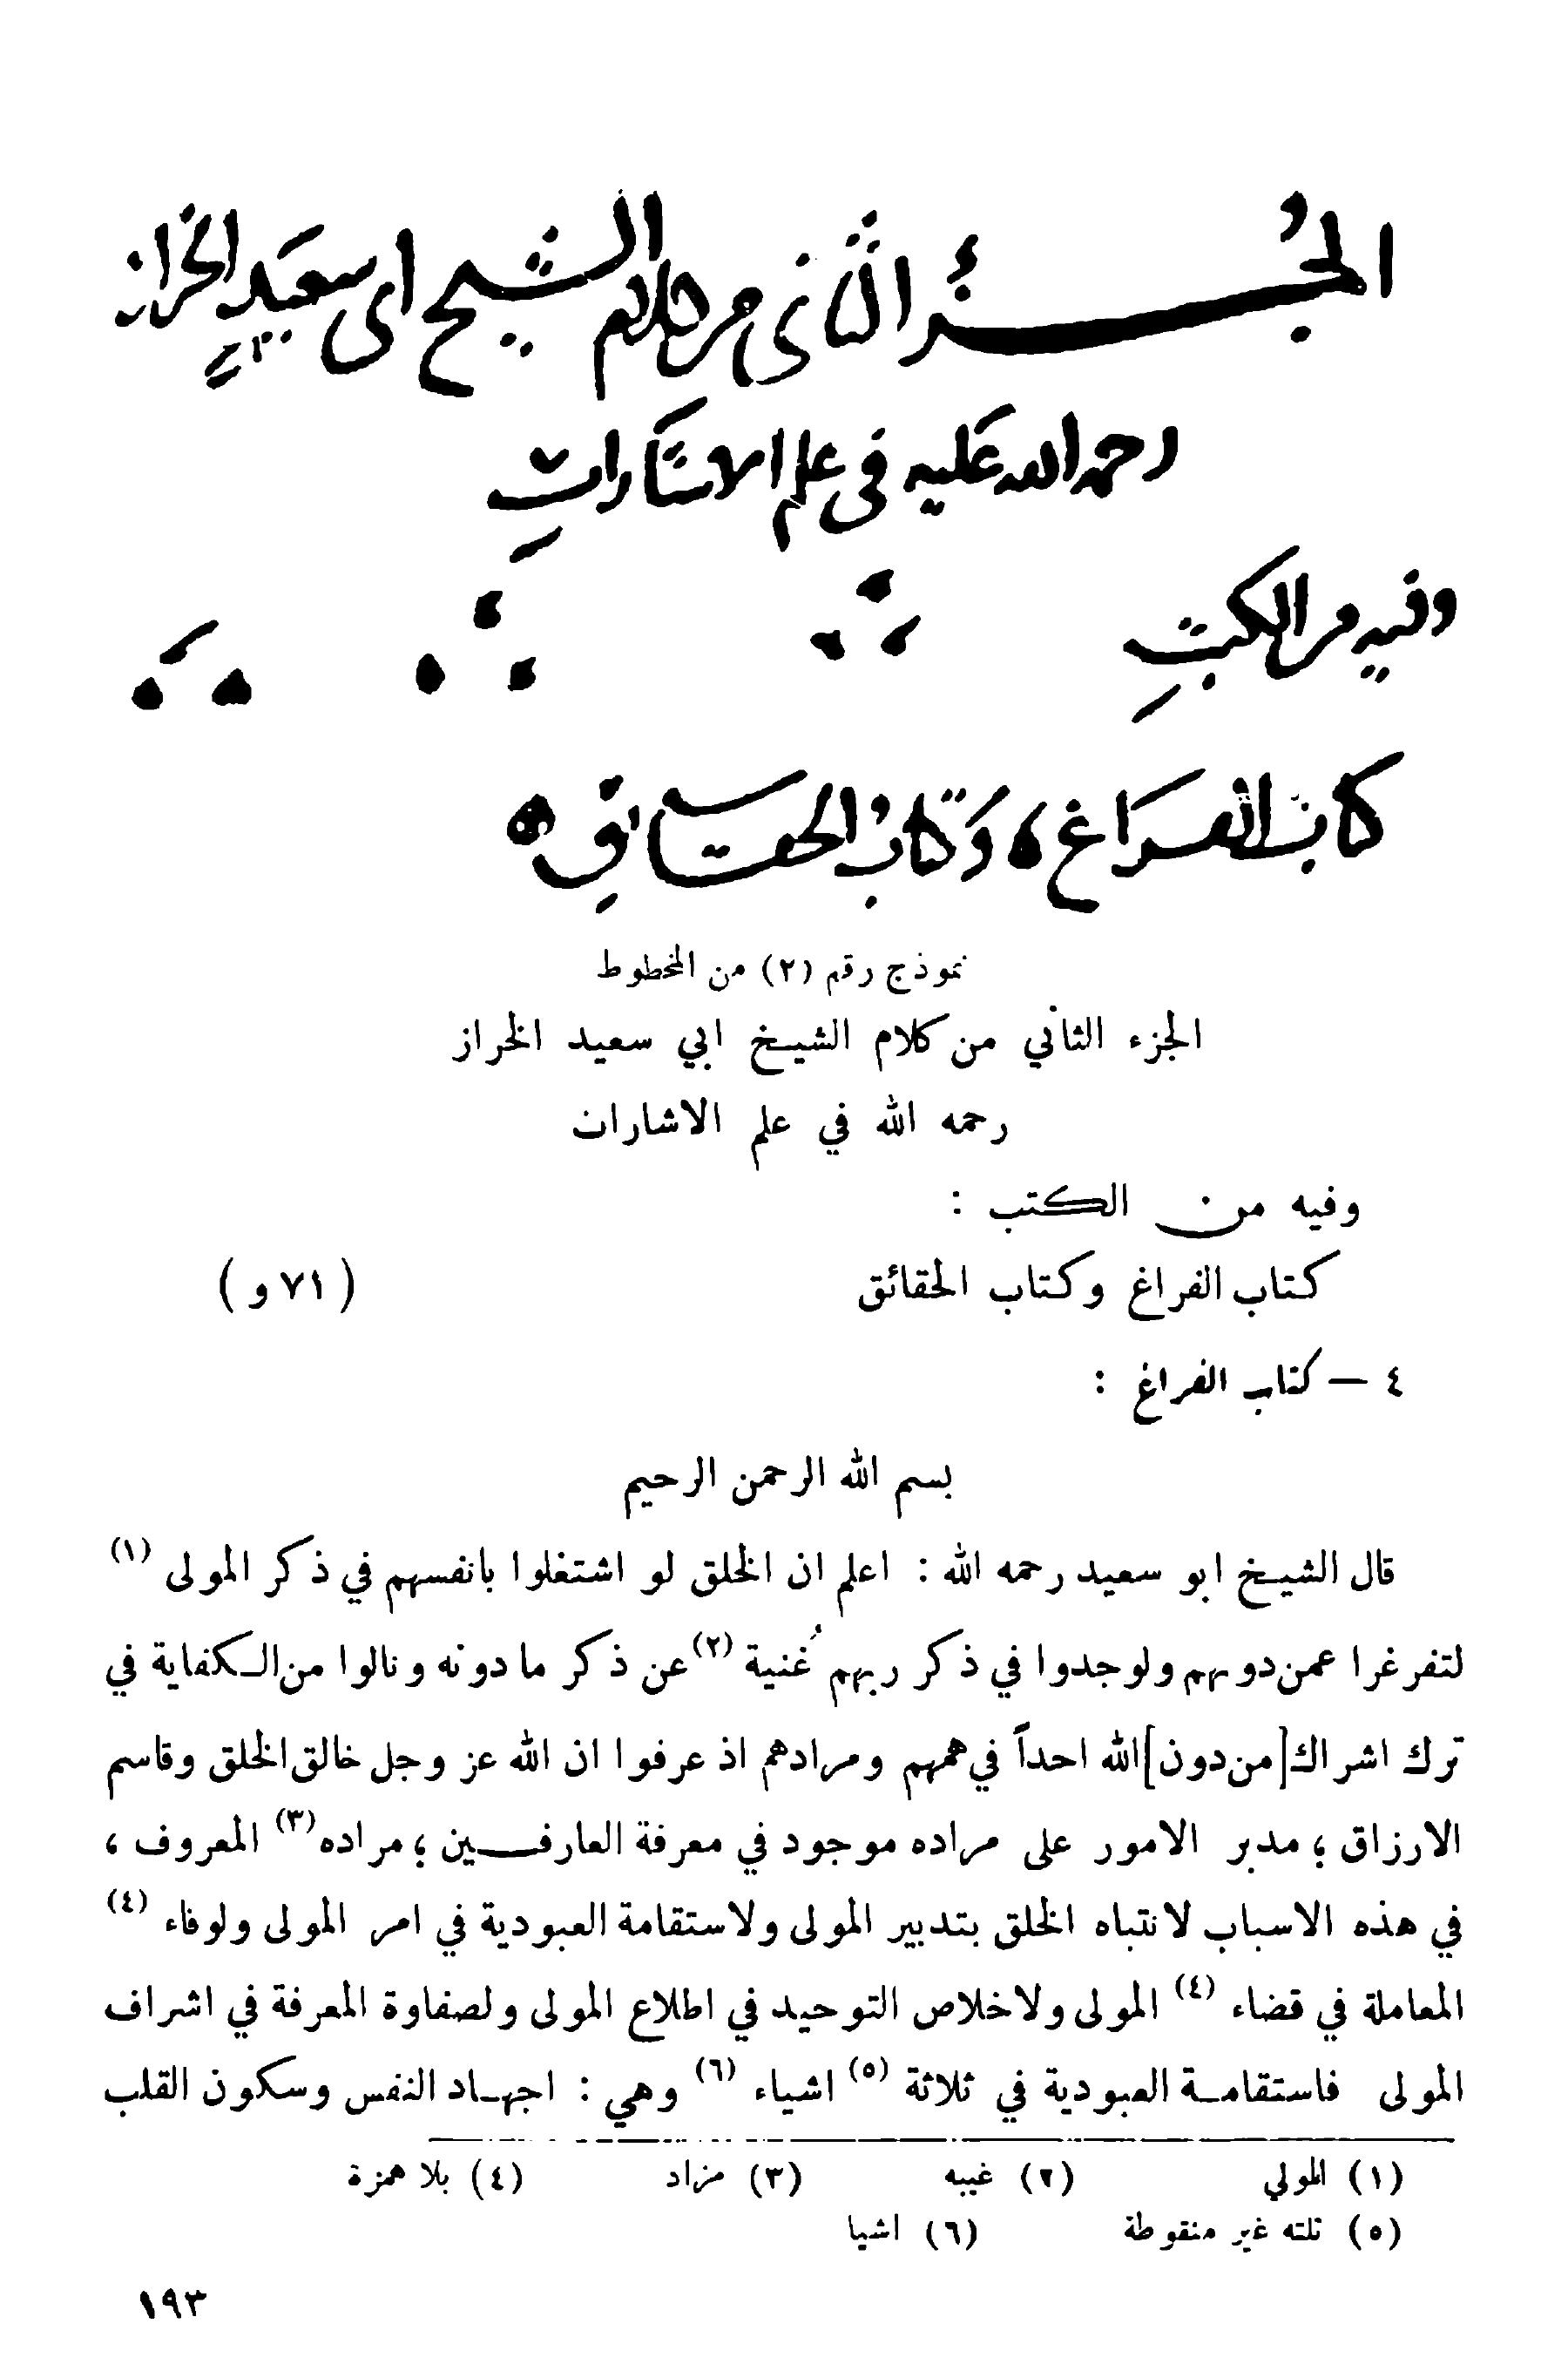 الجُزْء الثاني من كلام الشيخ ابي سعيد الخراز
رحمه الله عليه في علم الاشارات
وفيه من الكتب
كتاب الفراغ، وَكتابُ الحقايق
نموذج رقم (٢) من المخطوط
الجزء الثاني من كلام الشيخ ابي سعيد الخراز
رحمه الله في علم الاشارات
وفيه من الكتب :
كتاب الفراغ وكتاب الحقائق ( ٧١ و )
٤ – كتاب الفراغ :
بسم الله الرحمن الرحيم
قال الشيخ ابو سعيد رحمه الله : اعلم ان الخلق لو اشتغلوا بانفسهم في ذكر المولى (١)
لتفرغرا عمن دونهم ولوجدوا في ذكر ربهم غُنية (٢) عن ذكر ما دونه ونالوا من الكفاية في
ترك اشراك [من دون] الله احداً في همهم ومرادهم اذ عرفوا ان الله عز وجل خالق الخلق وقاسم
الارزاق ؛ مدبر الامور على مراده موجود في معرفة العارفين ؛ مراده (٣) المعروف ،
في هذه الاسباب لانتباه الخلق بتدبير المولى ولاستقامة العبودية في امر المولى ولوفاء (٤)
المعاملة في قضاء (٤) المولى ولاخلاص التوحيد في اطلاع المولى ولصفاوة المعرفة في اشراف
المولى فاستقامة العبودية في ثلاثة (٥) اشياء (٦) وهي : اجهاد النفس وسكون القلب
(١) المولي (٢) غيبه (٣) مزاد (٤) بلا همزة
(٥) ثلته غير منقوطة (٦) اشيا
١٩٣